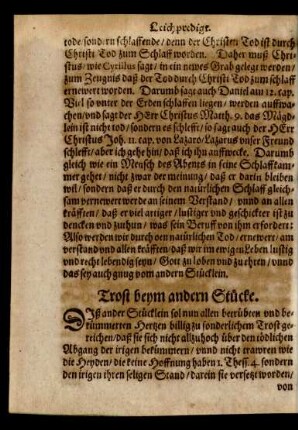 Leichpredigt.
tode/sondern schlaffende/denn der Christen Tod ist durch
Christi Tod zum Schlaff worden. Daher muß Chri-
stus/wie Cyrillus sagt/in ein newes Grab gelegt werden/
zum Zeugnis daß der Tod durch Christi Tod zum schlaff
ernewert worden. Darumb sagt auch Daniel am 12. cap.
Viel so unter der Erden schlaffen liegen/ werden auffwa-
chen/und sagt der HErr Christus Matth. 9. das Mägd-
lein ist nicht tod/sondern es schlefft/so sagt auch der HErr
Christus Joh. 11. cap. von Lazaro/Lazarus unser Freund
schlefft/aber ich gehe hin/daß ich ihn auffwecke. Darumb
gleich wie ein Mensch des Abents in seine Schlaffkam-
mer gehet/nicht zwar der meinung/daß er darin bleiben
wil/ sondern daß er durch den natürlichen Schlaff gleich-
sam vernewert werde an seinem Verstand/ vnnd an allen
kräfften/ daß er viel artiger/lustiger und geschickter ist zu
dencken und zuthun/ was sein Beruf von ihm erfordert:
Also werden wir durch den natürlichen Tod/ernewert/am
verstand und allen kräfften/daß wir im ewigen Leben lustig
und recht lebendig seyn/ Gott zu loben und zu ehren/ vnnd
das sey auch gnug vom andern Stücklein.
Trost beym andern Stücke.
DIß ander Stücklein sol nun allen betrübten und be-
kümmerten Hertzen billig zu sonderlichem Trost ge-
reichen/daß sie sich nicht allzuhoch über den tödlichen
Abgang der irigen bekümmern/ vnnd nicht trawren wie
die Heyden/die keine Hoffnung haben 1. Thess. 4. sondern
den irigen ihren seligen Stand/darein sie versetzt worden/
von